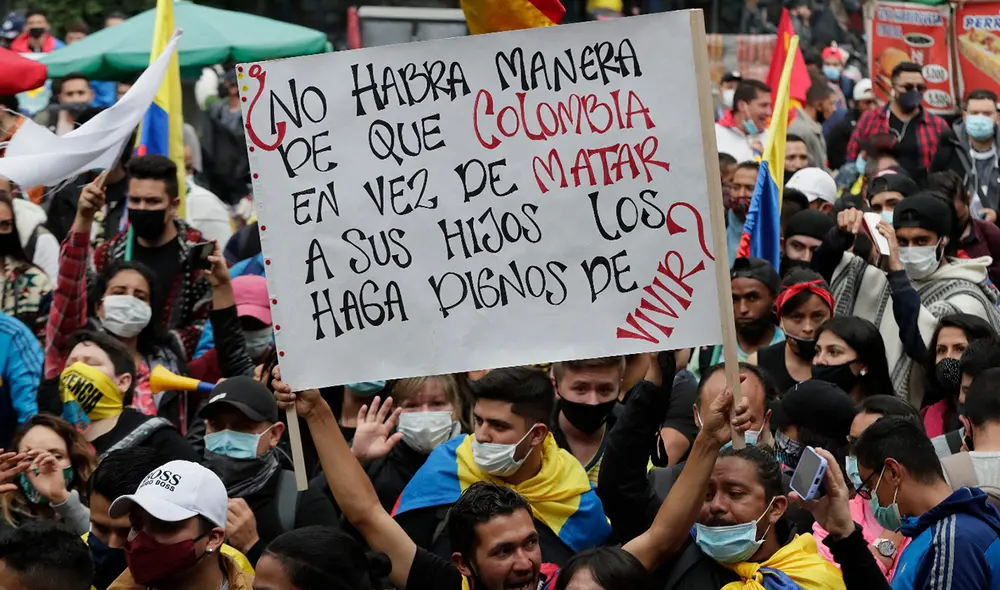 ¿NO HABRA MANERA
DE QUE COLOMBIA
EN VEZ DE MATAR
A SUS HIJOS LOS
HAGA DIGNOS DE
VIVIR?
BOSS
HUGO BOSS
PERR